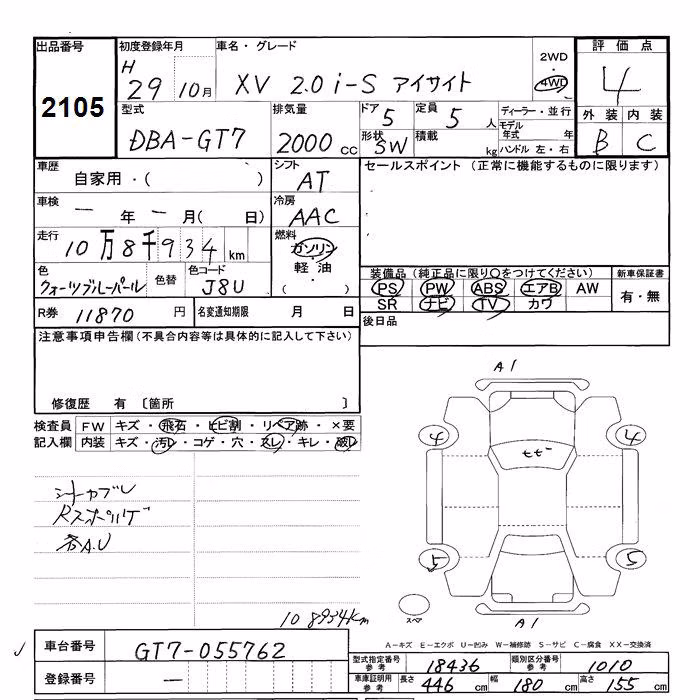 出品番号 初度登録年月 車名・グレード 2WD 評価点
2105 H 29 10月 XV 2.0i-S アイサイト 4WD 4
型式 排気量 ドア 定員 ディーラー・並行 外装 内装
DBA-GT7 2000 cc 5 5 人 モデル年式 年 B C
形状 SW 積載 kg ハンドル 左・右
車歴 シフト セールスポイント (正常に機能するものに限ります)
自家用・( ) AT
車検 冷房
ー 年 ー 月( 日) AAC
走行 燃料
10万8千934 km ガソリン
軽油
( ・ )
色 色替 色コード 装備品 (純正品に限り○をつけてください) 新車保証書
クォーツブルーパール J8U PS PW ABS エアB AW 有・無
SR ナビ TV カワ
R券 11870 円 名変通知期限 月 日 後日品
注意事項申告欄 (不具合内容等は具体的に記入して下さい)
修復歴 有 〔箇所 〕
検査員 FW キズ・飛石・ヒビ割・リペア跡・×要
記入欄 内装 キズ・汚レ・コゲ・穴・スレ・キレ・破レ
A1
4 4
5 5
スペア
A1
各A.U
108934km
車台番号 GT7-055762
登録番号 ー
A-キズ E-エクボ U-凹み W-補修跡 S-サビ C-腐食 XX-交換済
型式指定番号 参考 18436 類別区分番号 参考 1010
車庫証明用 参考 長さ 446 cm 幅 180 cm 高さ 155 cm